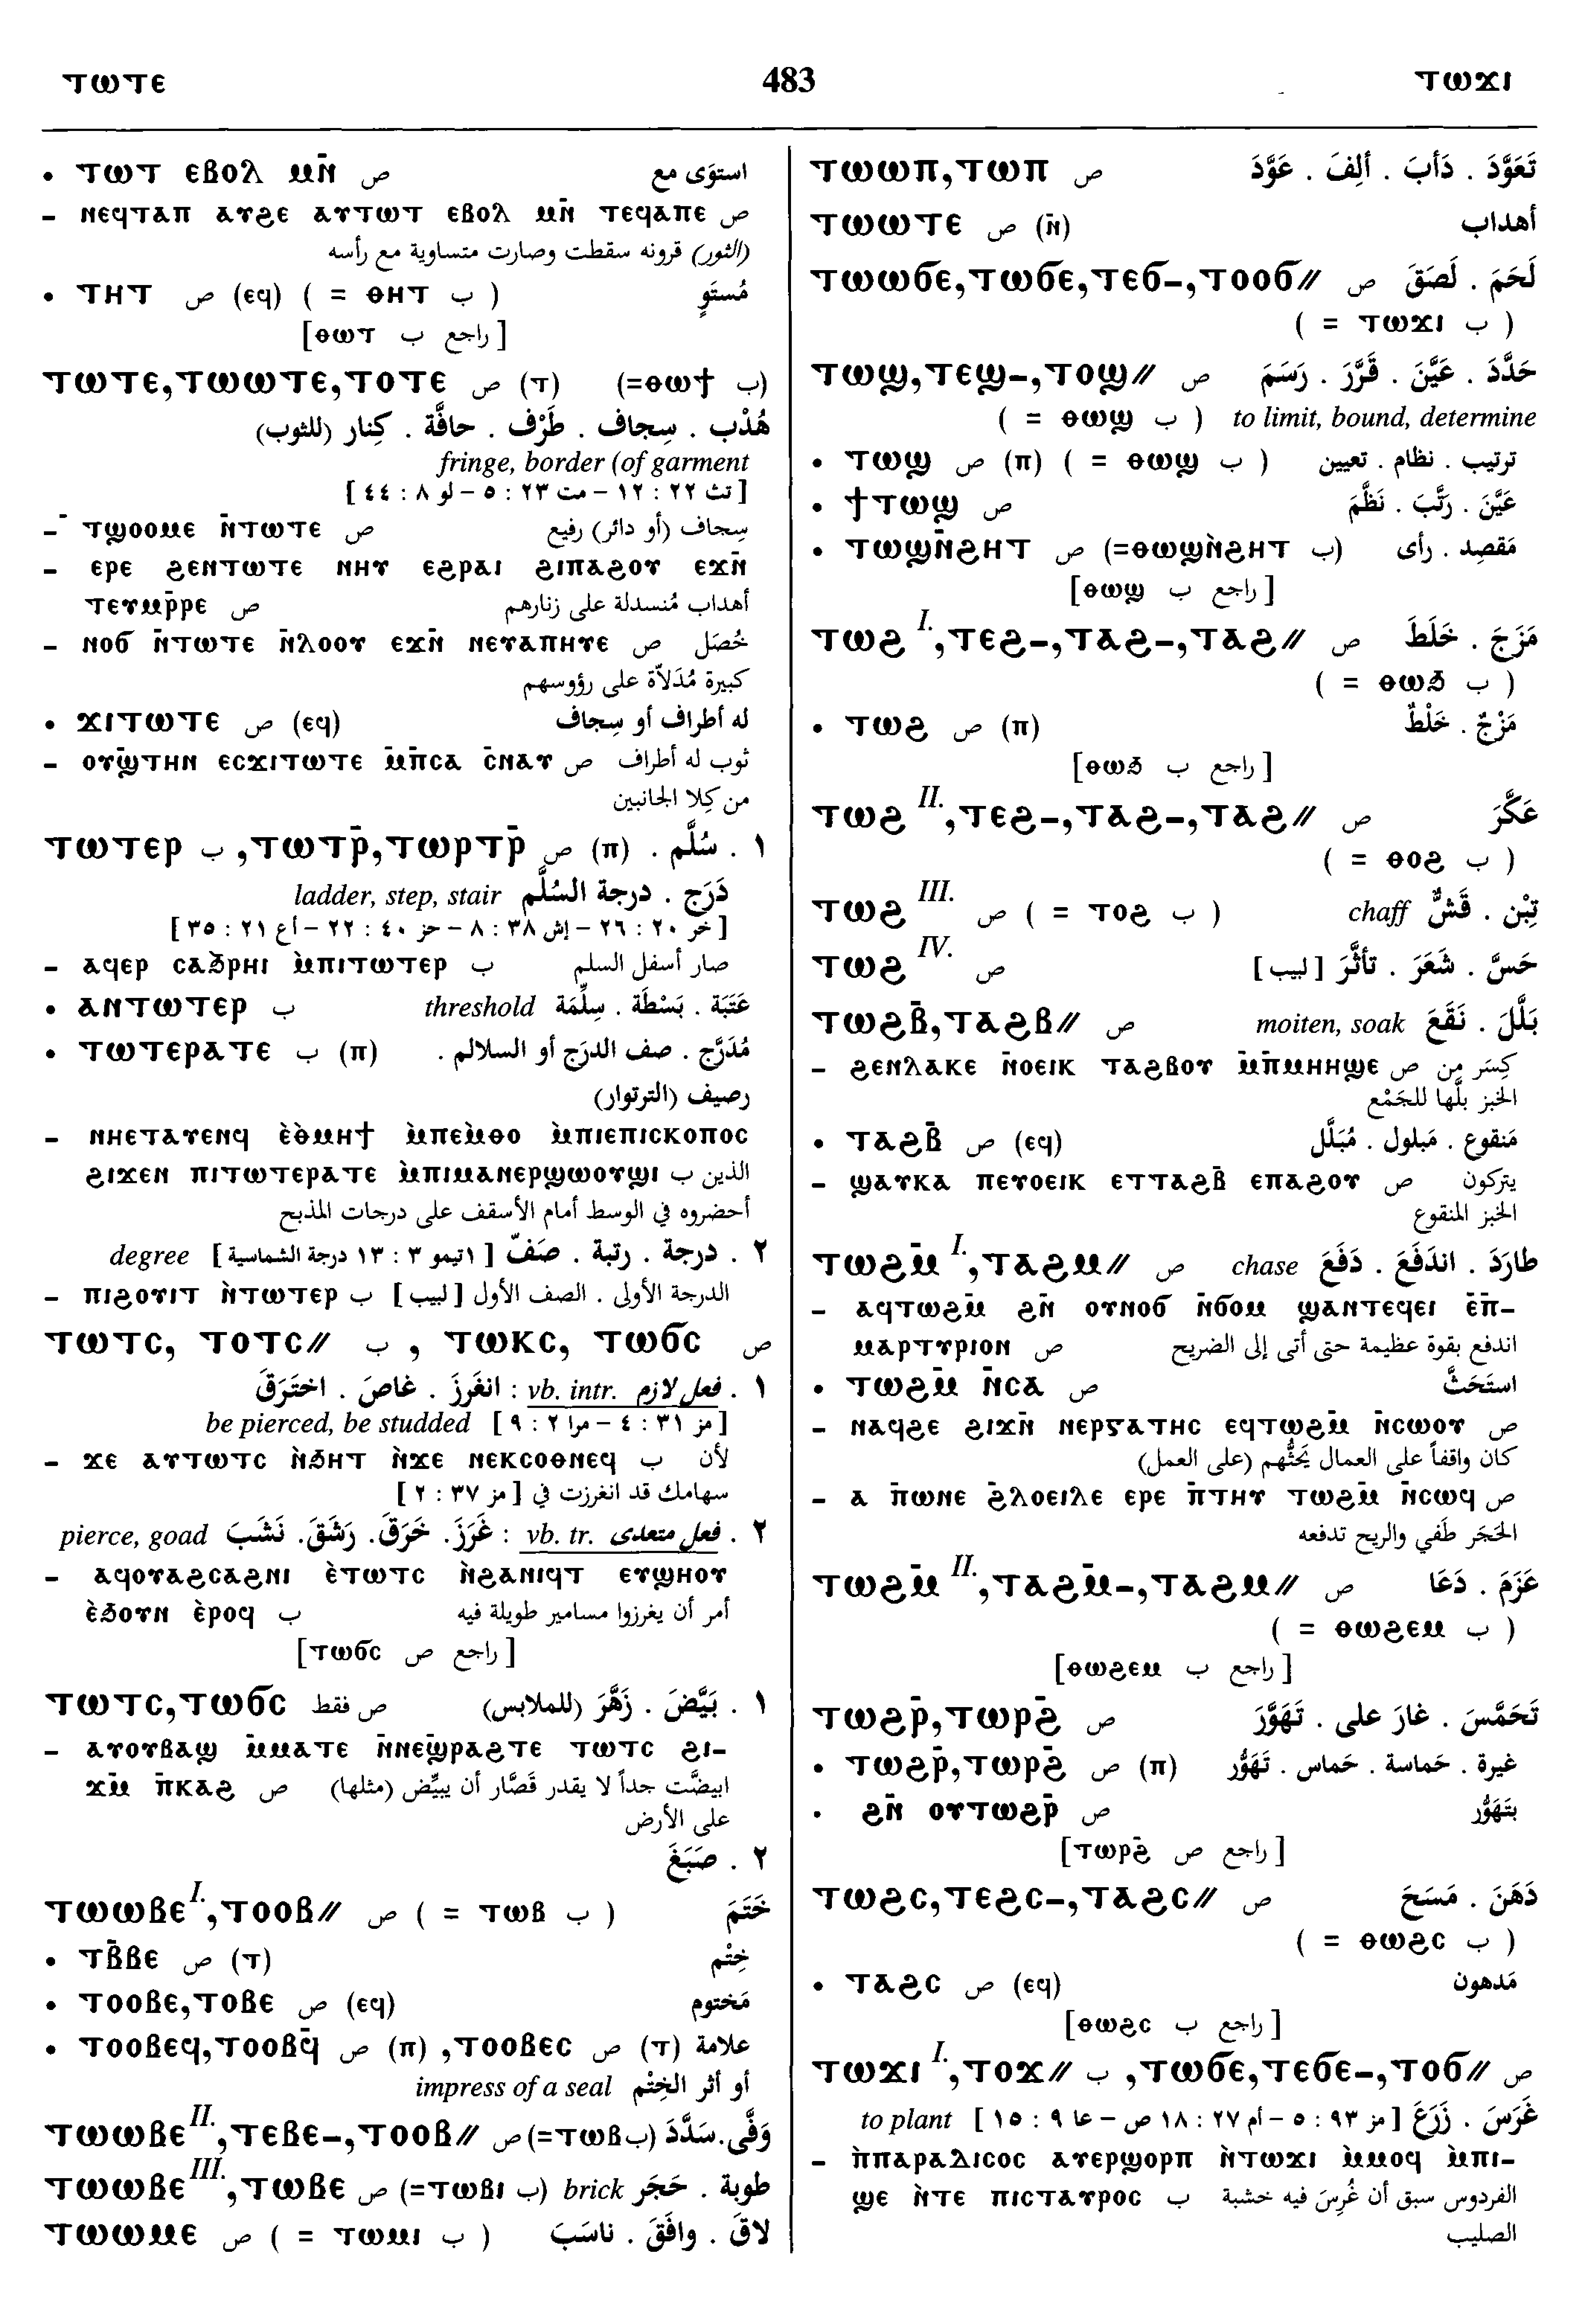 ⲧⲱⲧⲉ 483 ⲧⲱϫⲓ
• ⲧⲱⲧ ⲉⲃⲟⲗ ⲙⲛ̄ ص استوَى مع
– ⲛⲉϥⲧⲁⲡ ⲁⲩϩⲉ ⲁⲩⲧⲱⲧ ⲉⲃⲟⲗ ⲙⲛ̄ ⲧⲉϥⲁⲡⲉ ص
(الثور) قرونه سقطت وصارت متساوية مع رأسه
• ⲧⲏⲧ ص (ⲉϥ) ( = ⲑⲏⲧ ب ) مُستَوٍ
[ⲑⲱⲧ راجع ب]
ⲧⲱⲧⲉ,ⲧⲱⲱⲧⲉ,ⲧⲟⲧⲉ ص (ⲧ) (=ⲑⲱϯ ب)
هُدْب . سِجاف . طَرْف . حافَّة . كِنار (للثوب)
fringe, border (of garment
[تث ٢٢ : ١٢ – مت ٢٣ : ٥ – لو ٨ : ٤٤]
– ⲧϣⲟⲟⲙⲉ ⲛ̄ⲧⲱⲧⲉ ص سِجاف (أو دائر) رفيع
– ⲉⲣⲉ ϩⲉⲛⲧⲱⲧⲉ ⲛⲏⲩ ⲉϩⲣⲁⲓ ϩⲓⲡⲁϩⲟⲩ ⲉϫⲛ̄
ⲧⲉⲩⲙⲣ̄ⲣⲉ ص أهداب مُنسدلة على زنارهم
– ⲛⲟϭ ⲛ̄ⲧⲱⲧⲉ ⲛ̄ⲗⲟⲟⲩ ⲉϫⲛ̄ ⲛⲉⲩⲁⲡⲏⲩⲉ ص خُصَل
كبيرة مُدَلاَّة على رؤوسهم
• ϫⲓⲧⲱⲧⲉ ص (ⲉϥ) له أطراف أو سِجاف
– ⲟⲩϣ̄ⲧⲏⲛ ⲉⲥϫⲓⲧⲱⲧⲉ ⲙ̄ⲡ̄ⲥⲁ ⲥ̄ⲛⲁⲩ ص ثوب له أطراف
من كِلا الجانبين
ⲧⲱⲧⲉⲣ ب ,ⲧⲱⲧⲣ̄,ⲧⲱⲣⲧⲣ̄ ص (ⲡ) ١ . سُلَّم .
دَرَج . درجة السُلَّم ladder, step, stair
[خر ٢٠ : ٢٦ – إش ٣٨ : ٨ – حز ٤٠ : ٢٢ – أع ٢١ : ٣٥]
– ⲁϥⲉⲣ ⲥⲁϧⲣⲏⲓ ⲙ̀ⲡⲓⲧⲱⲧⲉⲣ ب صار أسفل السلم
• ⲁⲛⲧⲱⲧⲉⲣ ب عَتَبَة . بَسْطَة . سِلِّمَة threshold
• ⲧⲱⲧⲉⲣⲁⲧⲉ ب (ⲡ) مُدَرَّج . صف الدرَج أو السلالم .
رصيف (الترتوار)
– ⲛⲏⲉⲧⲁⲩⲉⲛϥ ⲉ̀ⲑ̀ⲙⲏϯ ⲙ̀ⲡⲉⲙ̀ⲑⲟ ⲙ̀ⲡⲓⲉⲡⲓⲥⲕⲟⲡⲟⲥ
ϩⲓϫⲉⲛ ⲡⲓⲧⲱⲧⲉⲣⲁⲧⲉ ⲙ̀ⲡⲓⲙⲁⲛⲉⲣϣⲱⲟⲩϣⲓ ب الذين
أحضروه في الوسط أمام الأسقف على درجات المذبح
٢ . درجة . رتبة . صَفّ [ ١تيمو ٣ : ١٣ درجة الشماسية ] degree
– ⲡⲓϩⲟⲩⲓⲧ ⲛ̀ⲧⲱⲧⲉⲣ ب الدرجة الأولى . الصف الأول [لبيب]
ⲧⲱⲧⲥ, ⲧⲟⲧⲥ// ب , ⲧⲱⲕⲥ, ⲧⲱϭⲥ ص
١ . فعل لازم vb. intr. : انغَرزَ . غاصَ . اختَرَقَ
[مز ٣١ : ٤ – مرا ٢ : ٩] be pierced, be studded
– ϫⲉ ⲁⲩⲧⲱⲧⲥ ⲛ̀ϧⲏⲧ ⲛ̀ϫⲉ ⲛⲉⲕⲥⲟⲑⲛⲉϥ ب لأن
سهامك قد انغرزت في [مز ٣٧ : ٢]
٢ . فعل متعدى vb. tr. : غَرَزَ. خَرَقَ. رَشَقَ. نَشَبَ pierce, goad
– ⲁϥⲟⲩⲁϩⲥⲁϩⲛⲓ ⲉ̀ⲧⲱⲧⲥ ⲛ̀ϩⲁⲛⲓϥⲧ ⲉⲩϣⲏⲟⲩ
ⲉ̀ϧⲟⲩⲛ ⲉ̀ⲣⲟϥ ب أمر أن يغرزوا مسامير طويلة فيه
[ⲧⲱϭⲥ راجع ص]
ⲧⲱⲧⲥ,ⲧⲱϭⲥ ص فقط ١ . بَيَّضَ . زَهَّرَ (للملابس)
– ⲁⲩⲟⲩⲃⲁϣ ⲙ̄ⲙⲁⲧⲉ ⲛ̄ⲛⲉϣ̄ⲣⲁϩⲧⲉ ⲧⲱⲧⲥ ϩⲓ–
ϫⲙ̄ ⲡ̄ⲕⲁϩ ص ابيضَّت جداً لا يقدر قَصَّار أن يبيِّض (مثلها)
على الأرض
٢ . صَبَغَ
ⲧⲱⲱⲃⲉ I.,ⲧⲟⲟⲃ// ص ( = ⲧⲱⲃ ب ) خَتَمَ
• ⲧⲃ̄ⲃⲉ ص (ⲧ) خِتْم
• ⲧⲟⲟⲃⲉ,ⲧⲟⲃⲉ ص (ⲉϥ) مَختوم
• ⲧⲟⲟⲃⲉϥ,ⲧⲟⲟⲃϥ̄ ص (ⲡ) ,ⲧⲟⲟⲃⲉⲥ ص (ⲧ) علامة
أو أثر الخِتْم impress of a seal
ⲧⲱⲱⲃⲉ II.,ⲧⲉⲃⲉ–,ⲧⲟⲟⲃ// ص (=ⲧⲱⲃ ب) وَفَّى.سَدَّدَ
ⲧⲱⲱⲃⲉ III.,ⲧⲱⲃⲉ ص (=ⲧⲱⲃⲓ ب) brick طوبة . حَجَر
ⲧⲱⲱⲙⲉ ص ( = ⲧⲱⲙⲓ ب ) لاقَ . وافَقَ . ناسَبَ
ⲧⲱⲱⲡ,ⲧⲱⲡ ص تَعَوَّدَ . دَأبَ . ألِفَ . عَوَّدَ
ⲧⲱⲱⲧⲉ ص (ⲛ̄) أهداب
ⲧⲱⲱϭⲉ,ⲧⲱϭⲉ,ⲧⲉϭ–,ⲧⲟⲟϭ// ص لَحَمَ . لَصَقَ
( = ⲧⲱϫⲓ ب )
ⲧⲱϣ,ⲧⲉϣ–,ⲧⲟϣ// ص حَدَّدَ . عَيَّنَ . قَرَّرَ . رَسَمَ
( = ⲑⲱϣ ب ) to limit, bound, determine
• ⲧⲱϣ ص (ⲡ) ( = ⲑⲱϣ ب ) ترتيب . نظام . تعيين
• ϯⲧⲱϣ ص عَيَّنَ . رَتَّبَ . نَظَّمَ
• ⲧⲱϣⲛ̄ϩⲏⲧ ص (=ⲑⲱϣⲛ̀ϩⲏⲧ ب) مَقصِد . رأى
[ⲑⲱϣ راجع ب]
ⲧⲱϩ I.,ⲧⲉϩ–,ⲧⲁϩ–,ⲧⲁϩ// ص مَزَجَ . خَلَطَ
( = ⲑⲱϧ ب )
• ⲧⲱϩ ص (ⲡ) مَزْجٌ . خَلْطٌ
[ⲑⲱϧ راجع ب]
ⲧⲱϩ II.,ⲧⲉϩ–,ⲧⲁϩ–,ⲧⲁϩ// ص عَكَّرَ
( = ⲑⲟϩ ب )
ⲧⲱϩ III. ص ( = ⲧⲟϩ ب ) chaff تِبْن . قَشٌّ
ⲧⲱϩ IV. ص حَسَّ . شَعَرَ . تأثَّرَ [لبيب]
ⲧⲱϩⲃ̄,ⲧⲁϩⲃ// ص moiten, soak بَلَّلَ . نَقَعَ
– ϩⲉⲛⲗⲁⲕⲉ ⲛ̄ⲟⲉⲓⲕ ⲧⲁϩⲃⲟⲩ ⲙ̄ⲡ̄ⲙⲏⲏϣⲉ ص كِسَر مِن
الخبز بلَّها للجَمْع
• ⲧⲁϩⲃ̄ ص (ⲉϥ) مَنقوع . مَبلول . مُبَلَّل
– ϣⲁⲩⲕⲁ ⲡⲉⲩⲟⲉⲓⲕ ⲉⲧⲧⲁϩⲃ̄ ⲉⲡⲁϩⲟⲩ ص يتركون
الخبز المنقوع
ⲧⲱϩⲙ̄ I.,ⲧⲁϩⲙ// ص chase طارَدَ . اندَفَعَ . دَفَعَ
– ⲁϥⲧⲱϩⲙ̄ ϩⲛ̄ ⲟⲩⲛⲟϭ ⲛ̄ϭⲟⲙ ϣⲁⲛⲧⲉϥⲉⲓ ⲉ̄ⲡ̄–
ⲙⲁⲣⲧⲩⲣⲓⲟⲛ ص اندفع بقوة عظيمة حتى أتى إلى الضريح
• ⲧⲱϩⲙ̄ ⲛ̄ⲥⲁ ص استَحَثَّ
– ⲛⲁϥϩⲉ ϩⲓϫⲛ̄ ⲛⲉⲣⲅⲁⲧⲏⲥ ⲉϥⲧⲱϩⲙ̄ ⲛ̄ⲥⲱⲟⲩ ص
كان واقفاً على العمال يَحَثُّهم (على العمل)
– ⲁ ⲡ̄ⲱⲛⲉ ϩ̄ⲗⲟⲉⲓⲗⲉ ⲉⲣⲉ ⲡ̄ⲧⲏⲩ ⲧⲱϩⲙ̄ ⲛ̄ⲥⲱϥ ص
الحَجَر طَفي والريح تدفعه
ⲧⲱϩⲙ̄ II.,ⲧⲁϩⲙ̄–,ⲧⲁϩⲙ// ص عَزَمَ . دَعَا
( = ⲑⲱϩⲉⲙ ب )
[ⲑⲱϩⲉⲙ راجع ب]
ⲧⲱϩⲣ̄,ⲧⲱⲣϩ̄ ص تَحَمَّسَ . غارَ على . تَهَوَّرَ
• ⲧⲱϩⲣ̄,ⲧⲱⲣϩ̄ ص (ⲡ) غيرة . حَماسة . حَماس . تَهَوُّر
• ϩⲛ̄ ⲟⲩⲧⲱϩⲣ̄ ص بتَهَوُّر
[ⲧⲱⲣϩ̄ راجع ص]
ⲧⲱϩⲥ,ⲧⲉϩⲥ–,ⲧⲁϩⲥ// ص دَهَنَ . مَسَحَ
( = ⲑⲱϩⲥ ب )
• ⲧⲁϩⲥ ص (ⲉϥ) مَدهون
[ⲑⲱϩⲥ راجع ب]
ⲧⲱϫⲓ I.,ⲧⲟϫ// ب ,ⲧⲱϭⲉ,ⲧⲉϭⲉ–,ⲧⲟϭ// ص
غَرَسَ . زَرَعَ [مز ٩٣ : ٥ – أم ٢٧ : ١٨ ص – عا ٩ : ١٥] to plant
– ⲡ̀ⲡⲁⲣⲁⲇⲓⲥⲟⲥ ⲁⲩⲉⲣϣⲟⲣⲡ ⲛ̀ⲧⲱϫⲓ ⲙ̀ⲙⲟϥ ⲙ̀ⲡⲓ–
ϣⲉ ⲛ̀ⲧⲉ ⲡⲓⲥⲧⲁⲩⲣⲟⲥ ب الفردوس سبق أن غُرِسَ فيه خشبة
الصليب